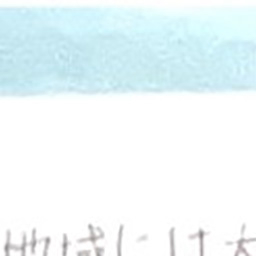 地域には大